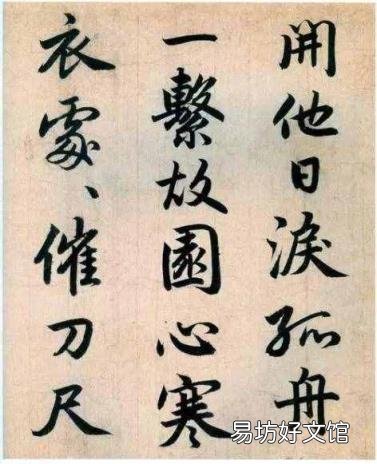 開他日淚孤舟
一繫故園心寒
衣處〻催刀尺
易坊好文馆